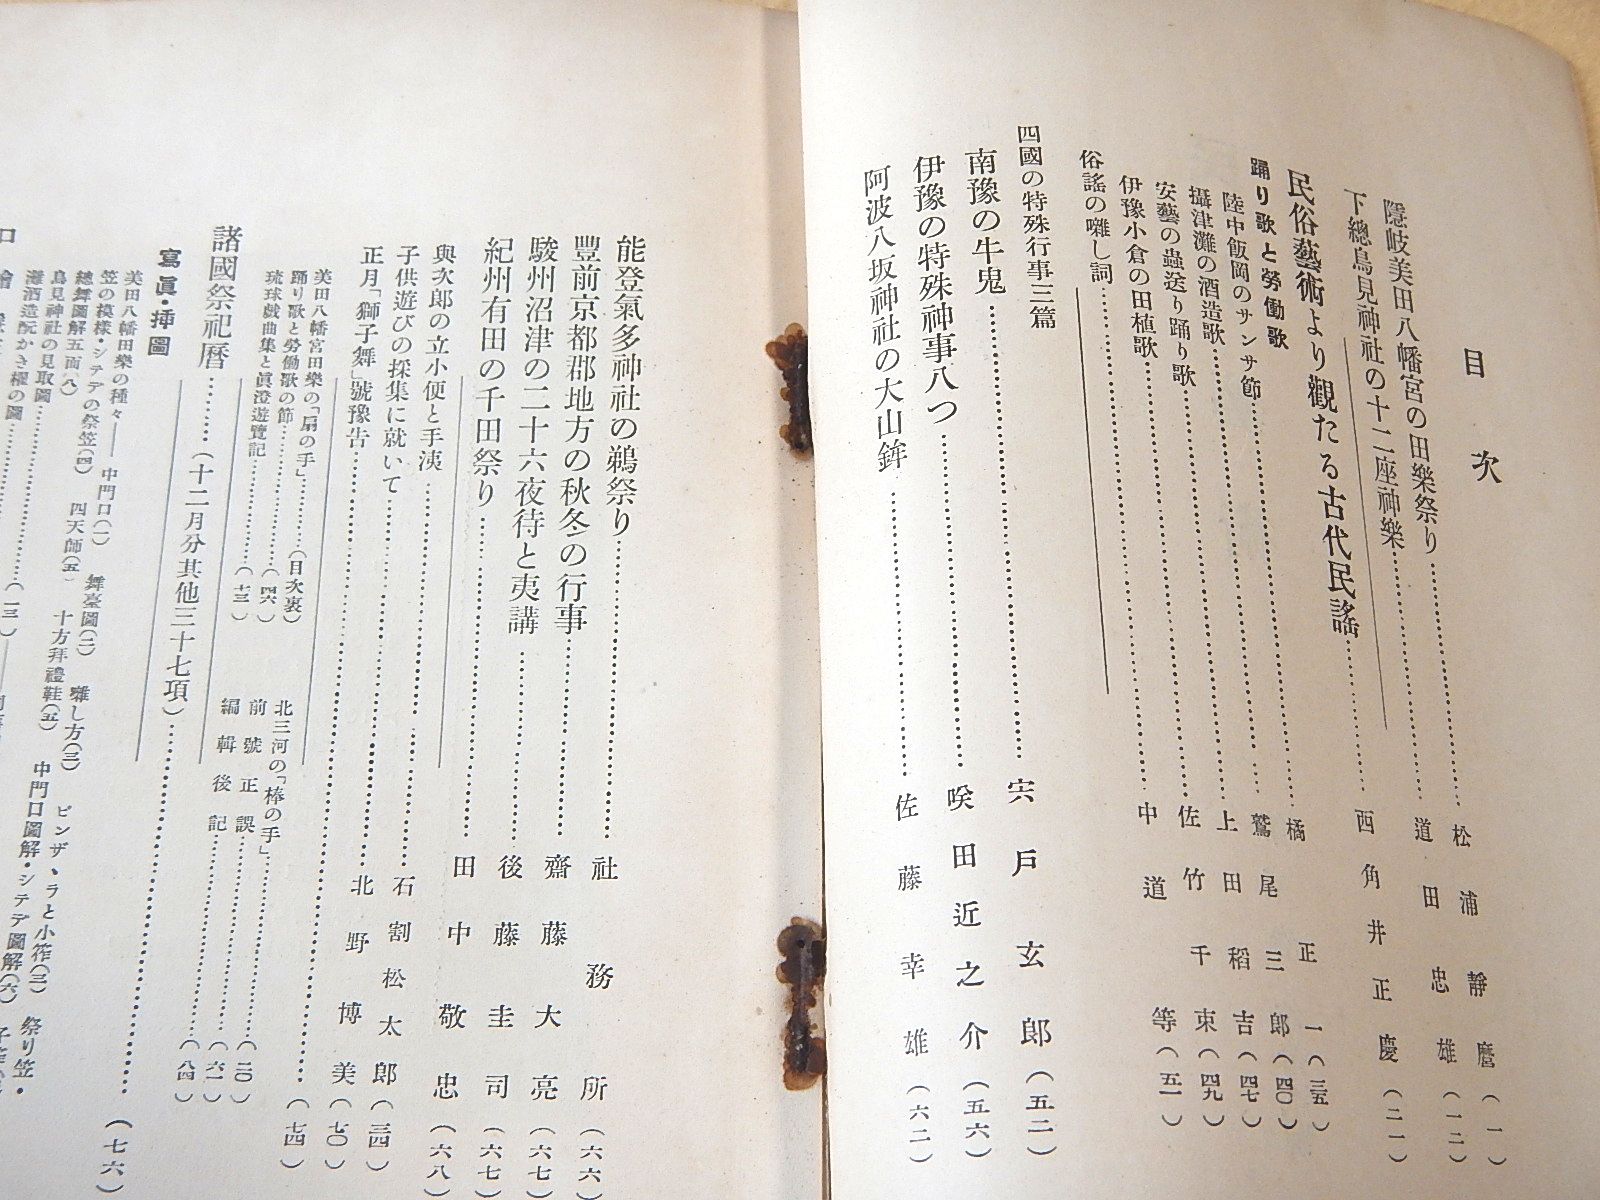 目次
隱岐美田八幡宮の田樂祭り…………松浦靜麿(一)
下總鳥見神社の十二座神樂…………道田忠雄(一二)
民俗藝術より觀たる古代民謠…………西角井正慶(二一)
踊り歌と勞働歌
陸中飯岡のサンサ節…………橘正一(三五)
攝津灘の酒造歌…………鷲尾三郎(四〇)
安藝の蟲送り踊り歌…………上田稻吉(四七)
伊豫小倉の田植歌…………佐竹千束(四九)
俗謠の囃し詞…………中道等(五一)
四國の特殊行事三篇
南豫の牛鬼…………宍戸玄郎(五二)
伊豫の特殊神事八つ…………喉田近之介(五六)
阿波八坂神社の大山鉾…………佐藤幸雄(六二)
能登氣多神社の鵜祭り…………社務所(六六)
豐前京都郡地方の秋冬の行事…………齋藤大亮(六七)
駿州沼津の二十六夜待と夷講…………後藤圭司(六七)
紀州有田の千田祭り…………田中敬忠(六八)
與次郎の立小便と手洟…………石割松太郎(三四)
子供遊びの採集に就いて…………北野博美(七〇)
正月「獅子舞」號豫告…………(七四)
美田八幡宮田樂の「扇の手」…………(目次裏)
踊り歌と勞働歌の節…………(四六)
琉球戲曲集と眞澄遊覽記…………(七三)
北三河の「棒の手」…………(二〇)
前號正誤…………(六一)
編輯後記…………(八四)
諸國祭祀曆………(十二月分其他三十七項)…………(七六)
寫眞・挿圖
美田八幡田樂の種々――中門口(一) 舞臺圖(二) 囃し方(三) ビンザヽラと小笮(三) 祭り笠・
笠の模樣・シテデの祭笠(四) 四天師(五) 十方拜禮鞋(五) 中門口圖解・シテデ圖解(六)
總舞圖解五面(八)
鳥見神社の見取圖…………(一三)
灘酒造酛かき櫂の圖…………
口